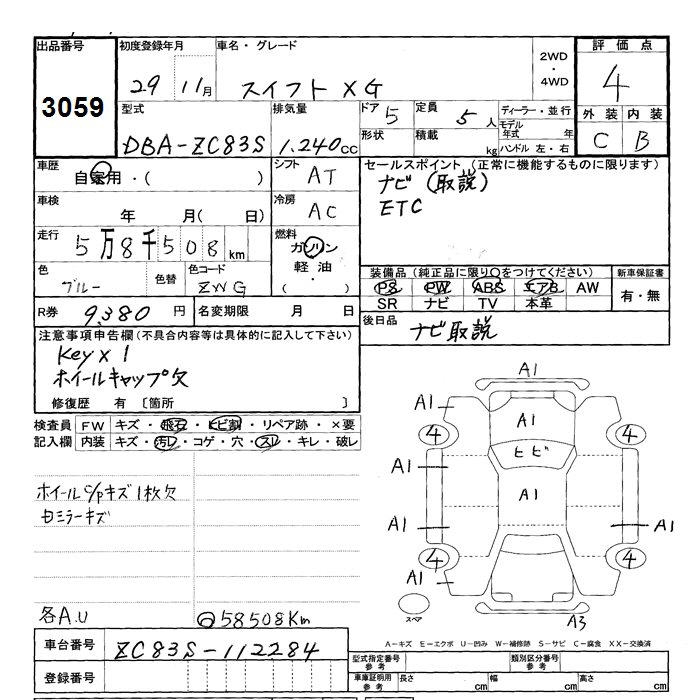 出品番号 初度登録年月 車名・グレード 2WD・4WD 評価点
3059 29 11月 スイフト XG 4
型式 排気量 ドア 5 定員 5人 ディーラー・並行 外装 内装
DBA-ZC83S 1.240cc 形状 積載 kg モデル年式 年 C B
ハンドル 左・右
車歴 自家用・( ) シフト AT セールスポイント (正常に機能するものに限ります)
ナビ (取説)
車検 年 月( 日) 冷房 AC ETC
走行 5万8千508km 燃料 ガソリン
軽油・( )
色 ブルー 色替 色コード ZWG
装備品 (純正品に限り○をつけてください) 新車保証書
PS PW ABS エアB AW 有・無
SR ナビ TV 本革
R券 9,380円 名変期限 月 日
後日品 ナビ取説
注意事項申告欄 (不具合内容等は具体的に記入して下さい)
Key×1
ホイールキャップ欠
修復歴 有 〔箇所 〕
検査員記入欄 FW キズ・飛石・ヒビ割・リペア跡・×要
内装 キズ・汚レ・コゲ・穴・スレ・キレ・破レ
ホイールc/pキズ1枚欠
ミラーキズ
各A.U
58508Km
A1
A1 A1
4 4
ヒビ
A1
A1
A1 A1
4 4
A1
スペア
A3
A-キズ E-エクボ U-凹み W-補修跡 S-サビ C-腐食 XX-交換済
車台番号 ZC83S-112284
型式指定番号 参考 類別区分番号 参考
登録番号
車庫証明用 参考 長さ cm 幅 cm 高さ cm